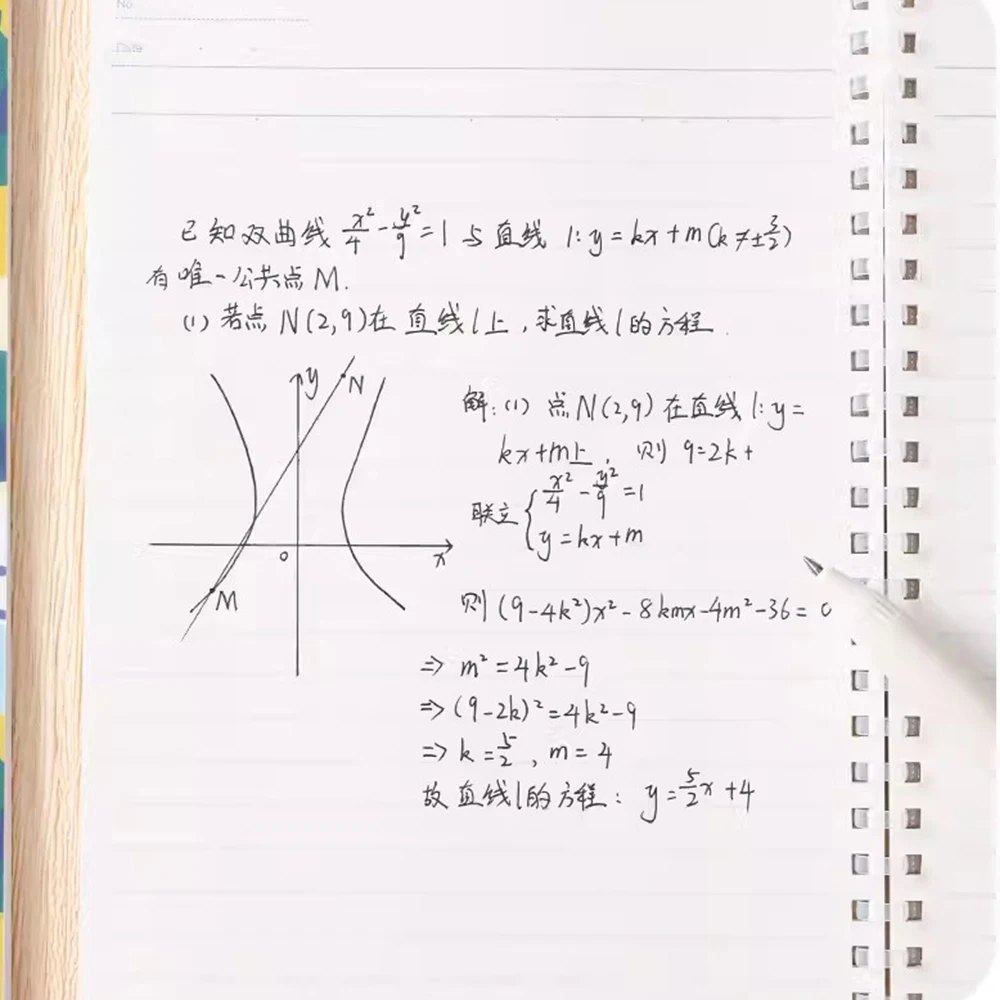 No
Date
已知双曲线 x²/4 - y²/9 = 1 与直线 l: y = kx + m (k ≠ ± 3/2)
有唯一公共点 M.
(1) 若点 N(2,9) 在直线 l 上,求直线 l 的方程.
y
N
x
o
M
解: (1) 点 N(2,9) 在直线 l: y =
kx+m上, 则 9=2k+
联立 { x²/4 - y²/9 = 1
y = kx + m
则 (9-4k²)x² - 8kmx - 4m² - 36 = 0
⇒ m² = 4k² - 9
⇒ (9-2k)² = 4k² - 9
⇒ k = 5/2 , m = 4
故直线 l 的方程: y = 5/2 x + 4